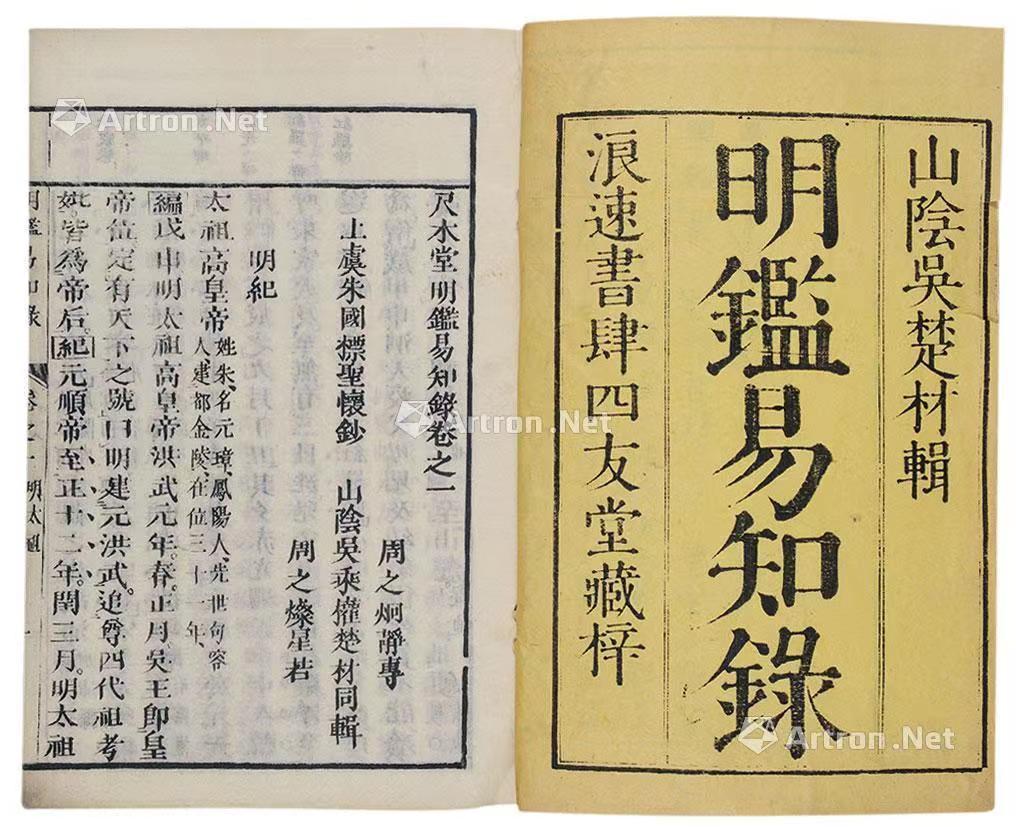 山陰吳楚材輯
明鑑易知錄
浪速書肆四友堂藏梓
尺木堂明鑑易知錄卷之一
周之炯靜專
上虞朱國標聖懷鈔 山陰吳乘權楚材同輯
周之燦星若
明紀
太祖高皇帝 姓朱、名元璋、鳳陽人、先世句容
人、建都金陵、在位三十一年、
編戊申明太祖高皇帝洪武元年。春。正月吳王即皇
帝位定有天下之號曰明建元洪武。追尊四代祖考
妣。皆爲帝后。紀元順帝至正十二年。閏三月。明太祖
明鑑易知錄 卷之一 明太祖 一
Artron.Net
Artron.Net
Artron.Net